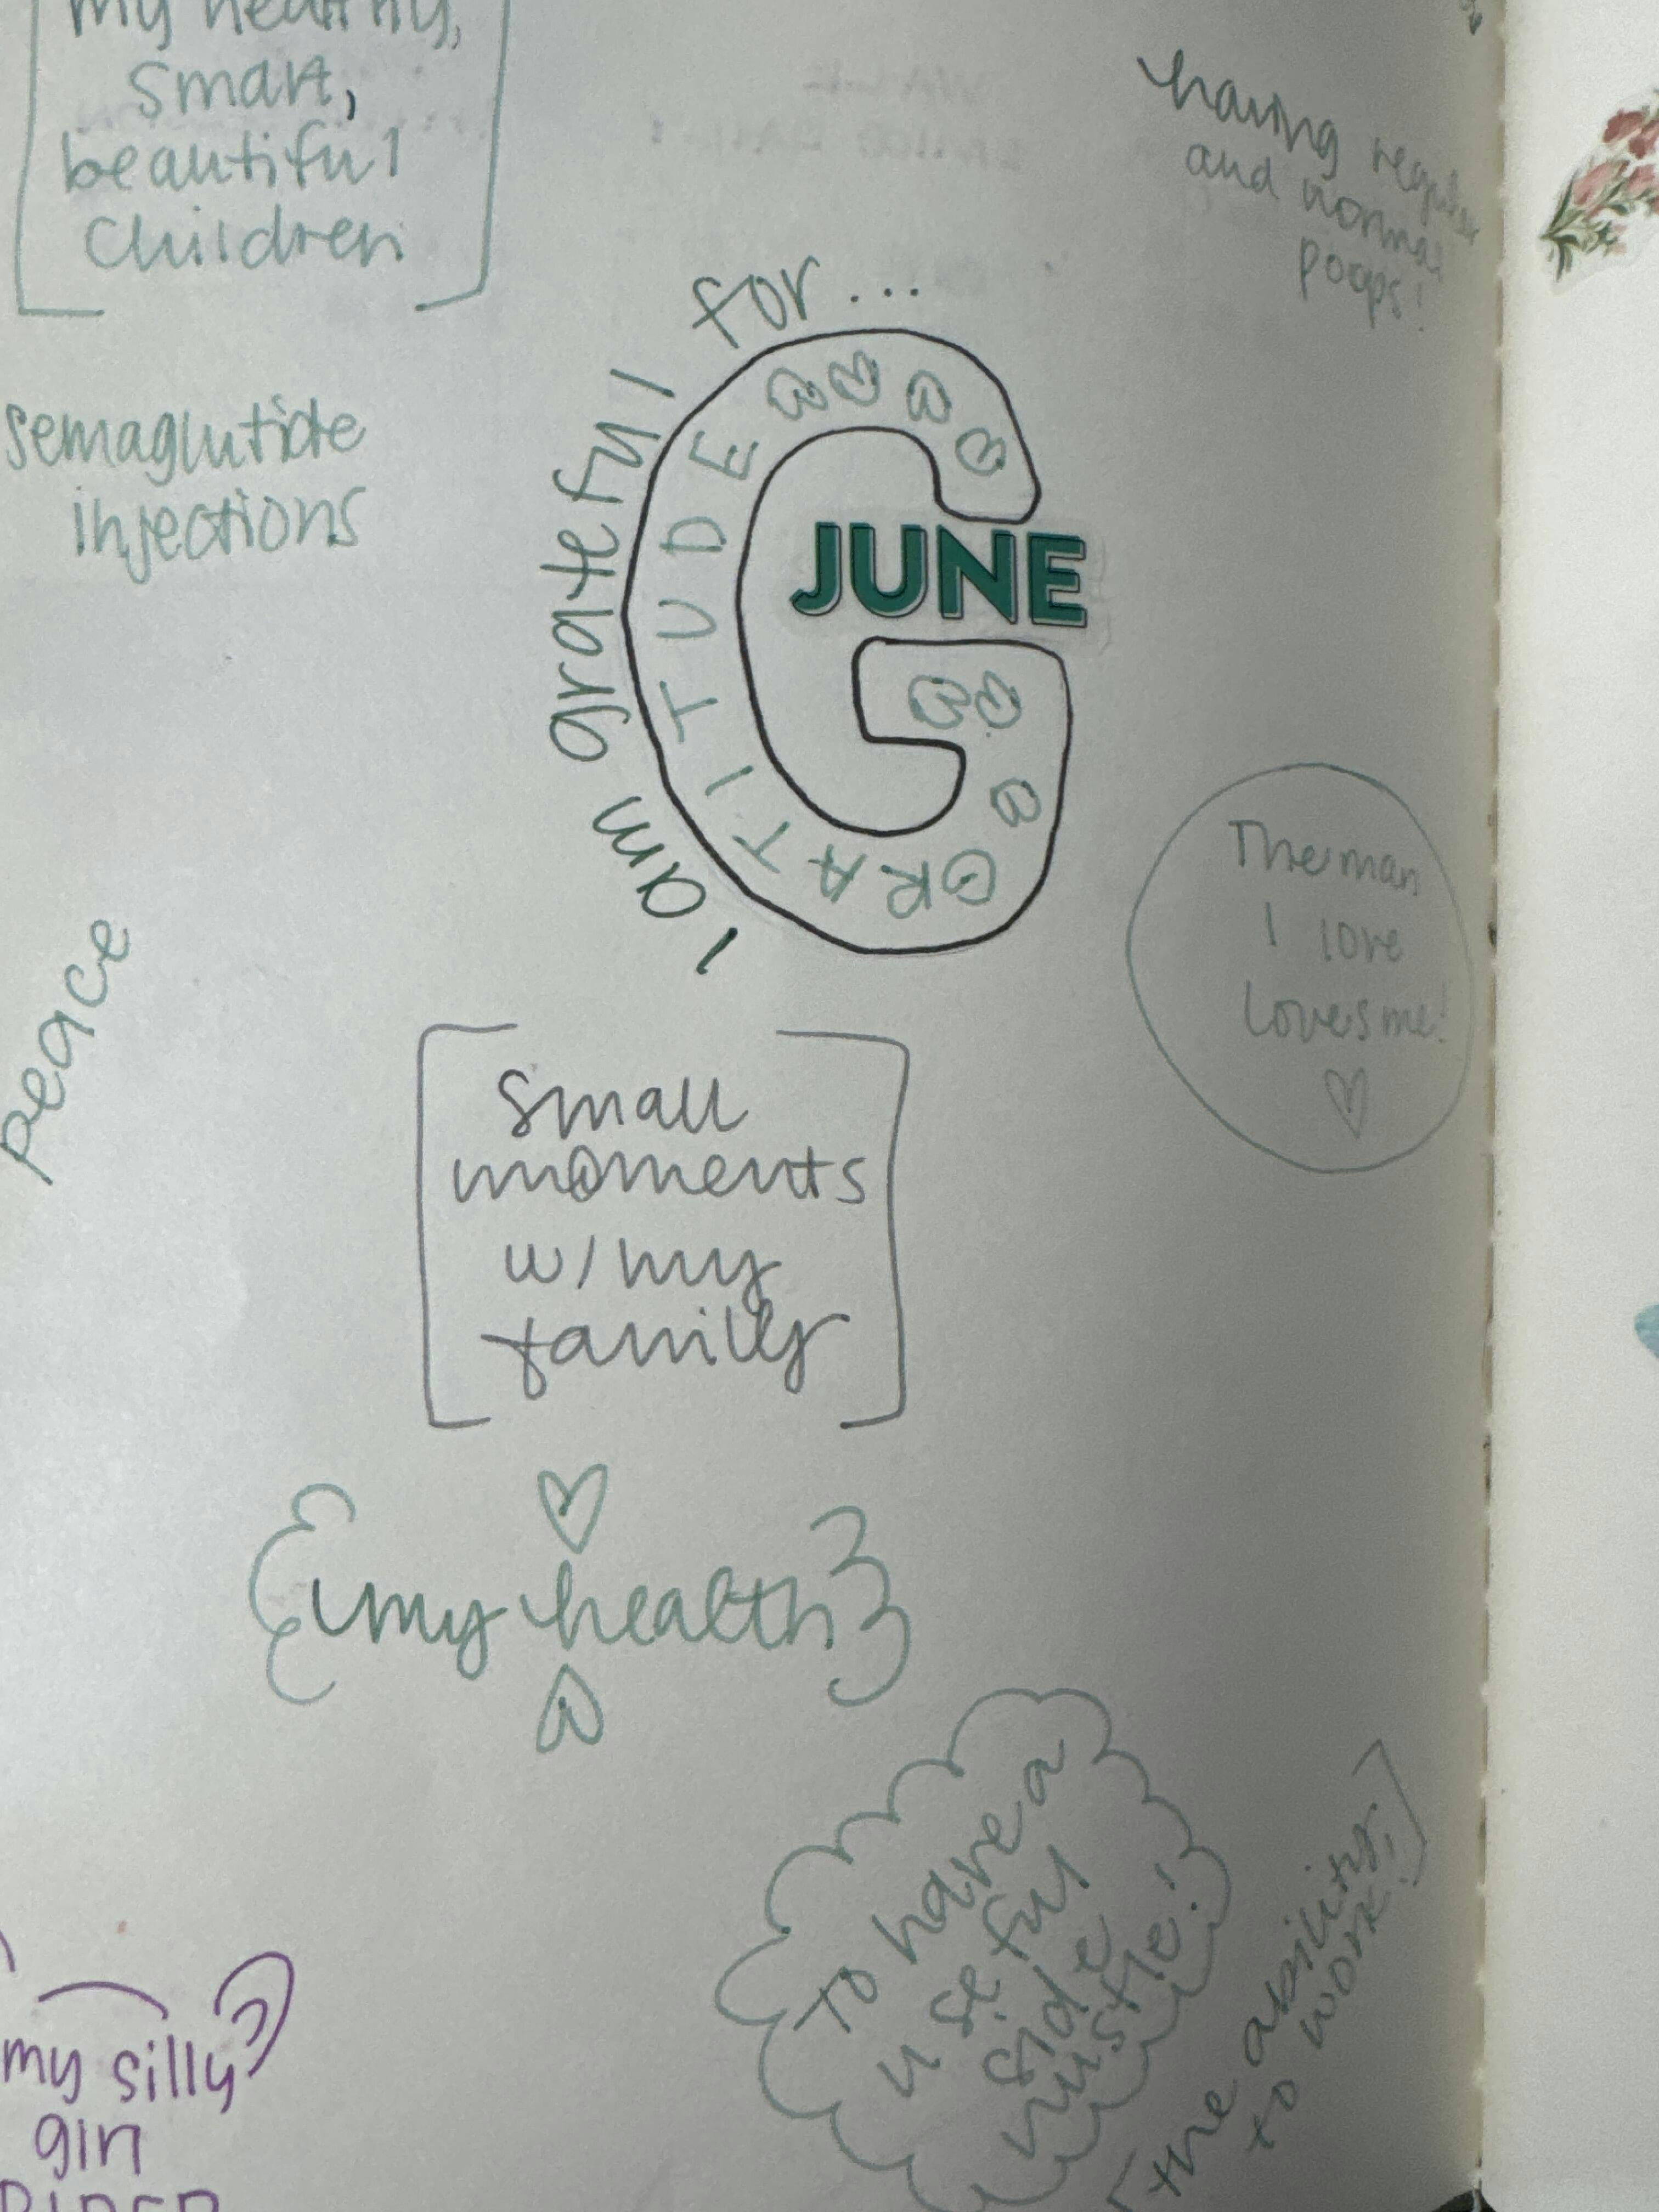 my healthy,
smart,
beautiful
children
having regular
and normal
poops!
semaglutide
injections
I am grateful for...
GRATITUDE
JUNE
The man
I love
loves me!
peace
small
moments
w/ my
family
my health
To have a
useful
side
hustle!
the ability
to work
my silly
girl